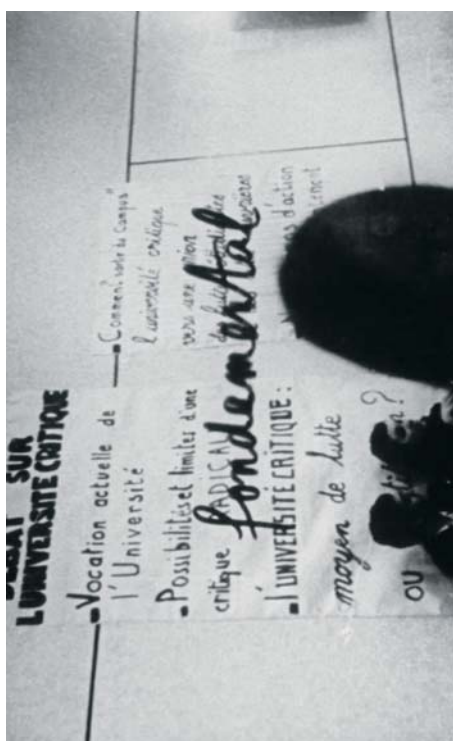 DÉBAT SUR
L'UNIVERSITÉ CRITIQUE
-Vocation actuelle de
l'Université
-Possibilités et limites d'une
critique RADICAL
fondamental
-l'UNIVERSITÉ CRITIQUE:
moyen de lutte
OU
?
-Comment sortir du Campus
l'université critique
vers une
d'action